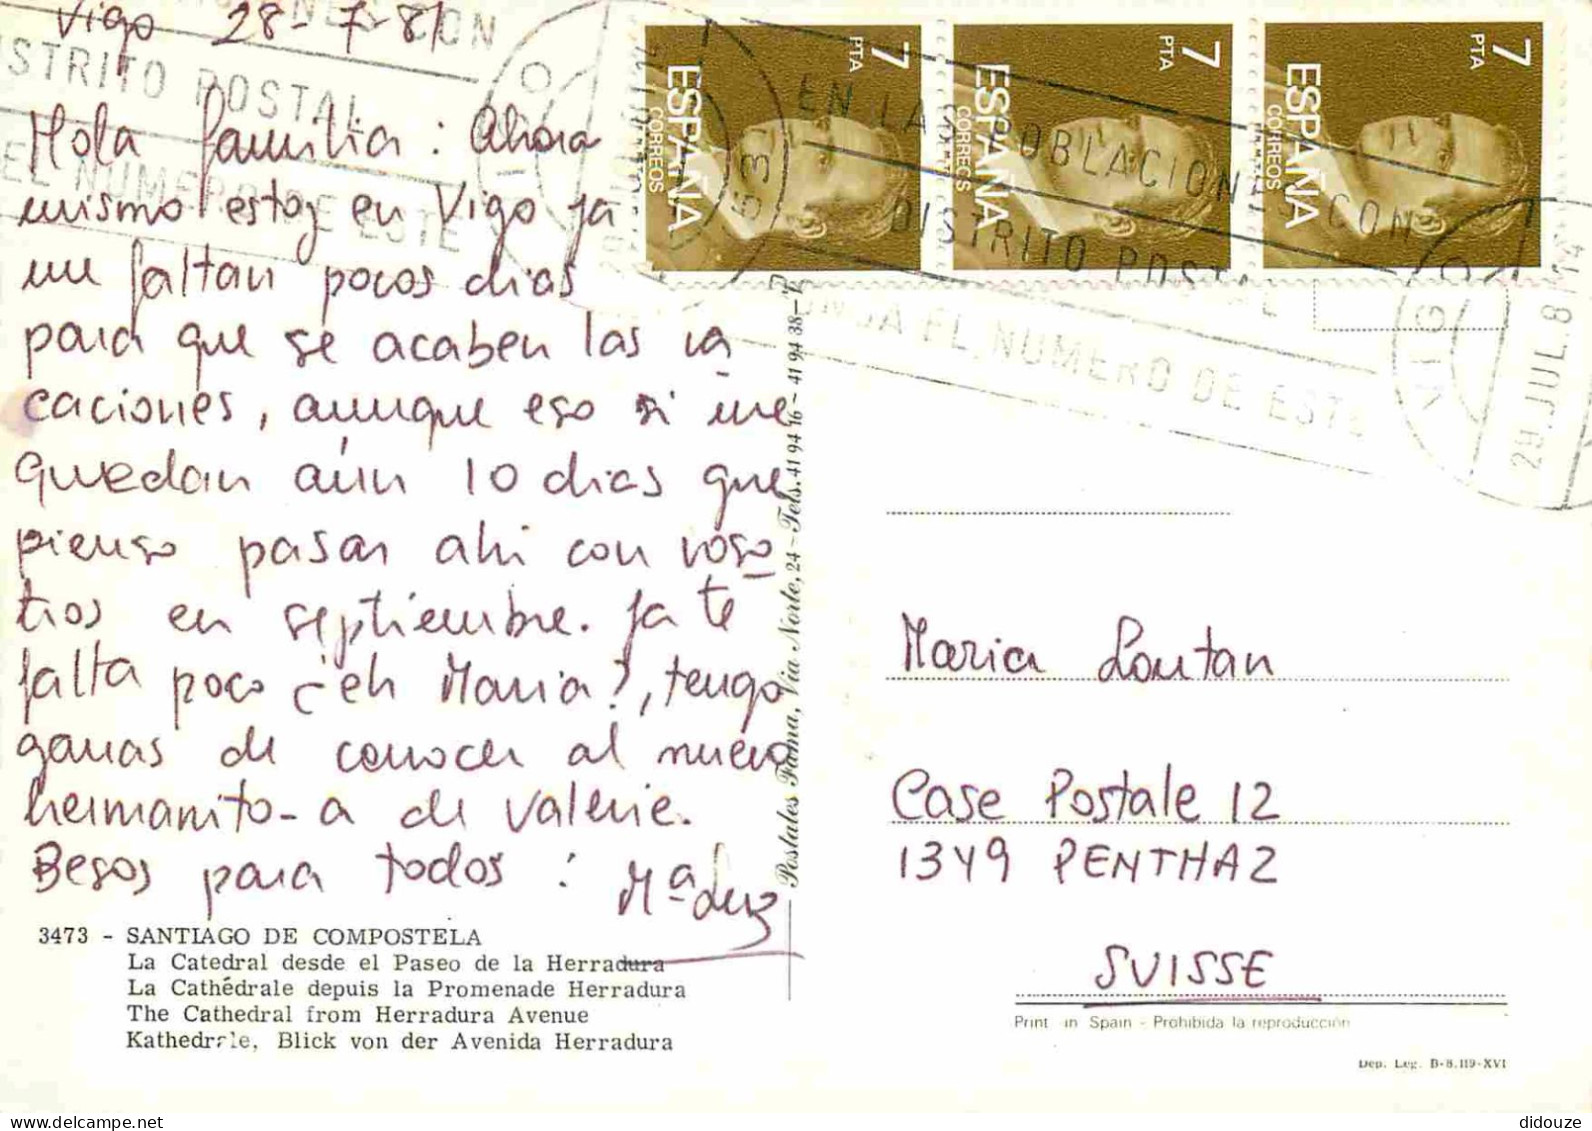 Vigo 28-7-81
Hola familia: Ahora
mismo estoy en Vigo ya
me faltan pocos dias
para que se acaben las va
caciones, aunque eso si me
quedan aún 10 dias que
pienso pasar ahi con voso
tros en septiembre. Ya te
falta poco ¿eh Maria?, tengo
ganas de conocer al nuevo
hermanito-a de Valerie.
Besos para todos: Mª Luz
3473 - SANTIAGO DE COMPOSTELA
La Catedral desde el Paseo de la Herradura
La Cathédrale depuis la Promenade Herradura
The Cathedral from Herradura Avenue
Kathedrale, Blick von der Avenida Herradura
Postales Fama, Via Norte, 24 - Tels. 41 94 16 - 41 94 38 -
7 PTA
ESPAÑA
CORREOS
7 PTA
ESPAÑA
CORREOS
7 PTA
ESPAÑA
CORREOS
CON
DISTRITO POSTAL
EL NUMERO DE ESTE
EN LAS POBLACIONES CON
DISTRITO POSTAL
PONGA EL NUMERO DE ESTE
VIGO
29 JUL. 81
Maria Loutan
Case Postale 12
1349 PENTHAZ
SUISSE
Print in Spain - Prohibida la reproducción
Dep. Leg. B-8.119-XVI
didouze